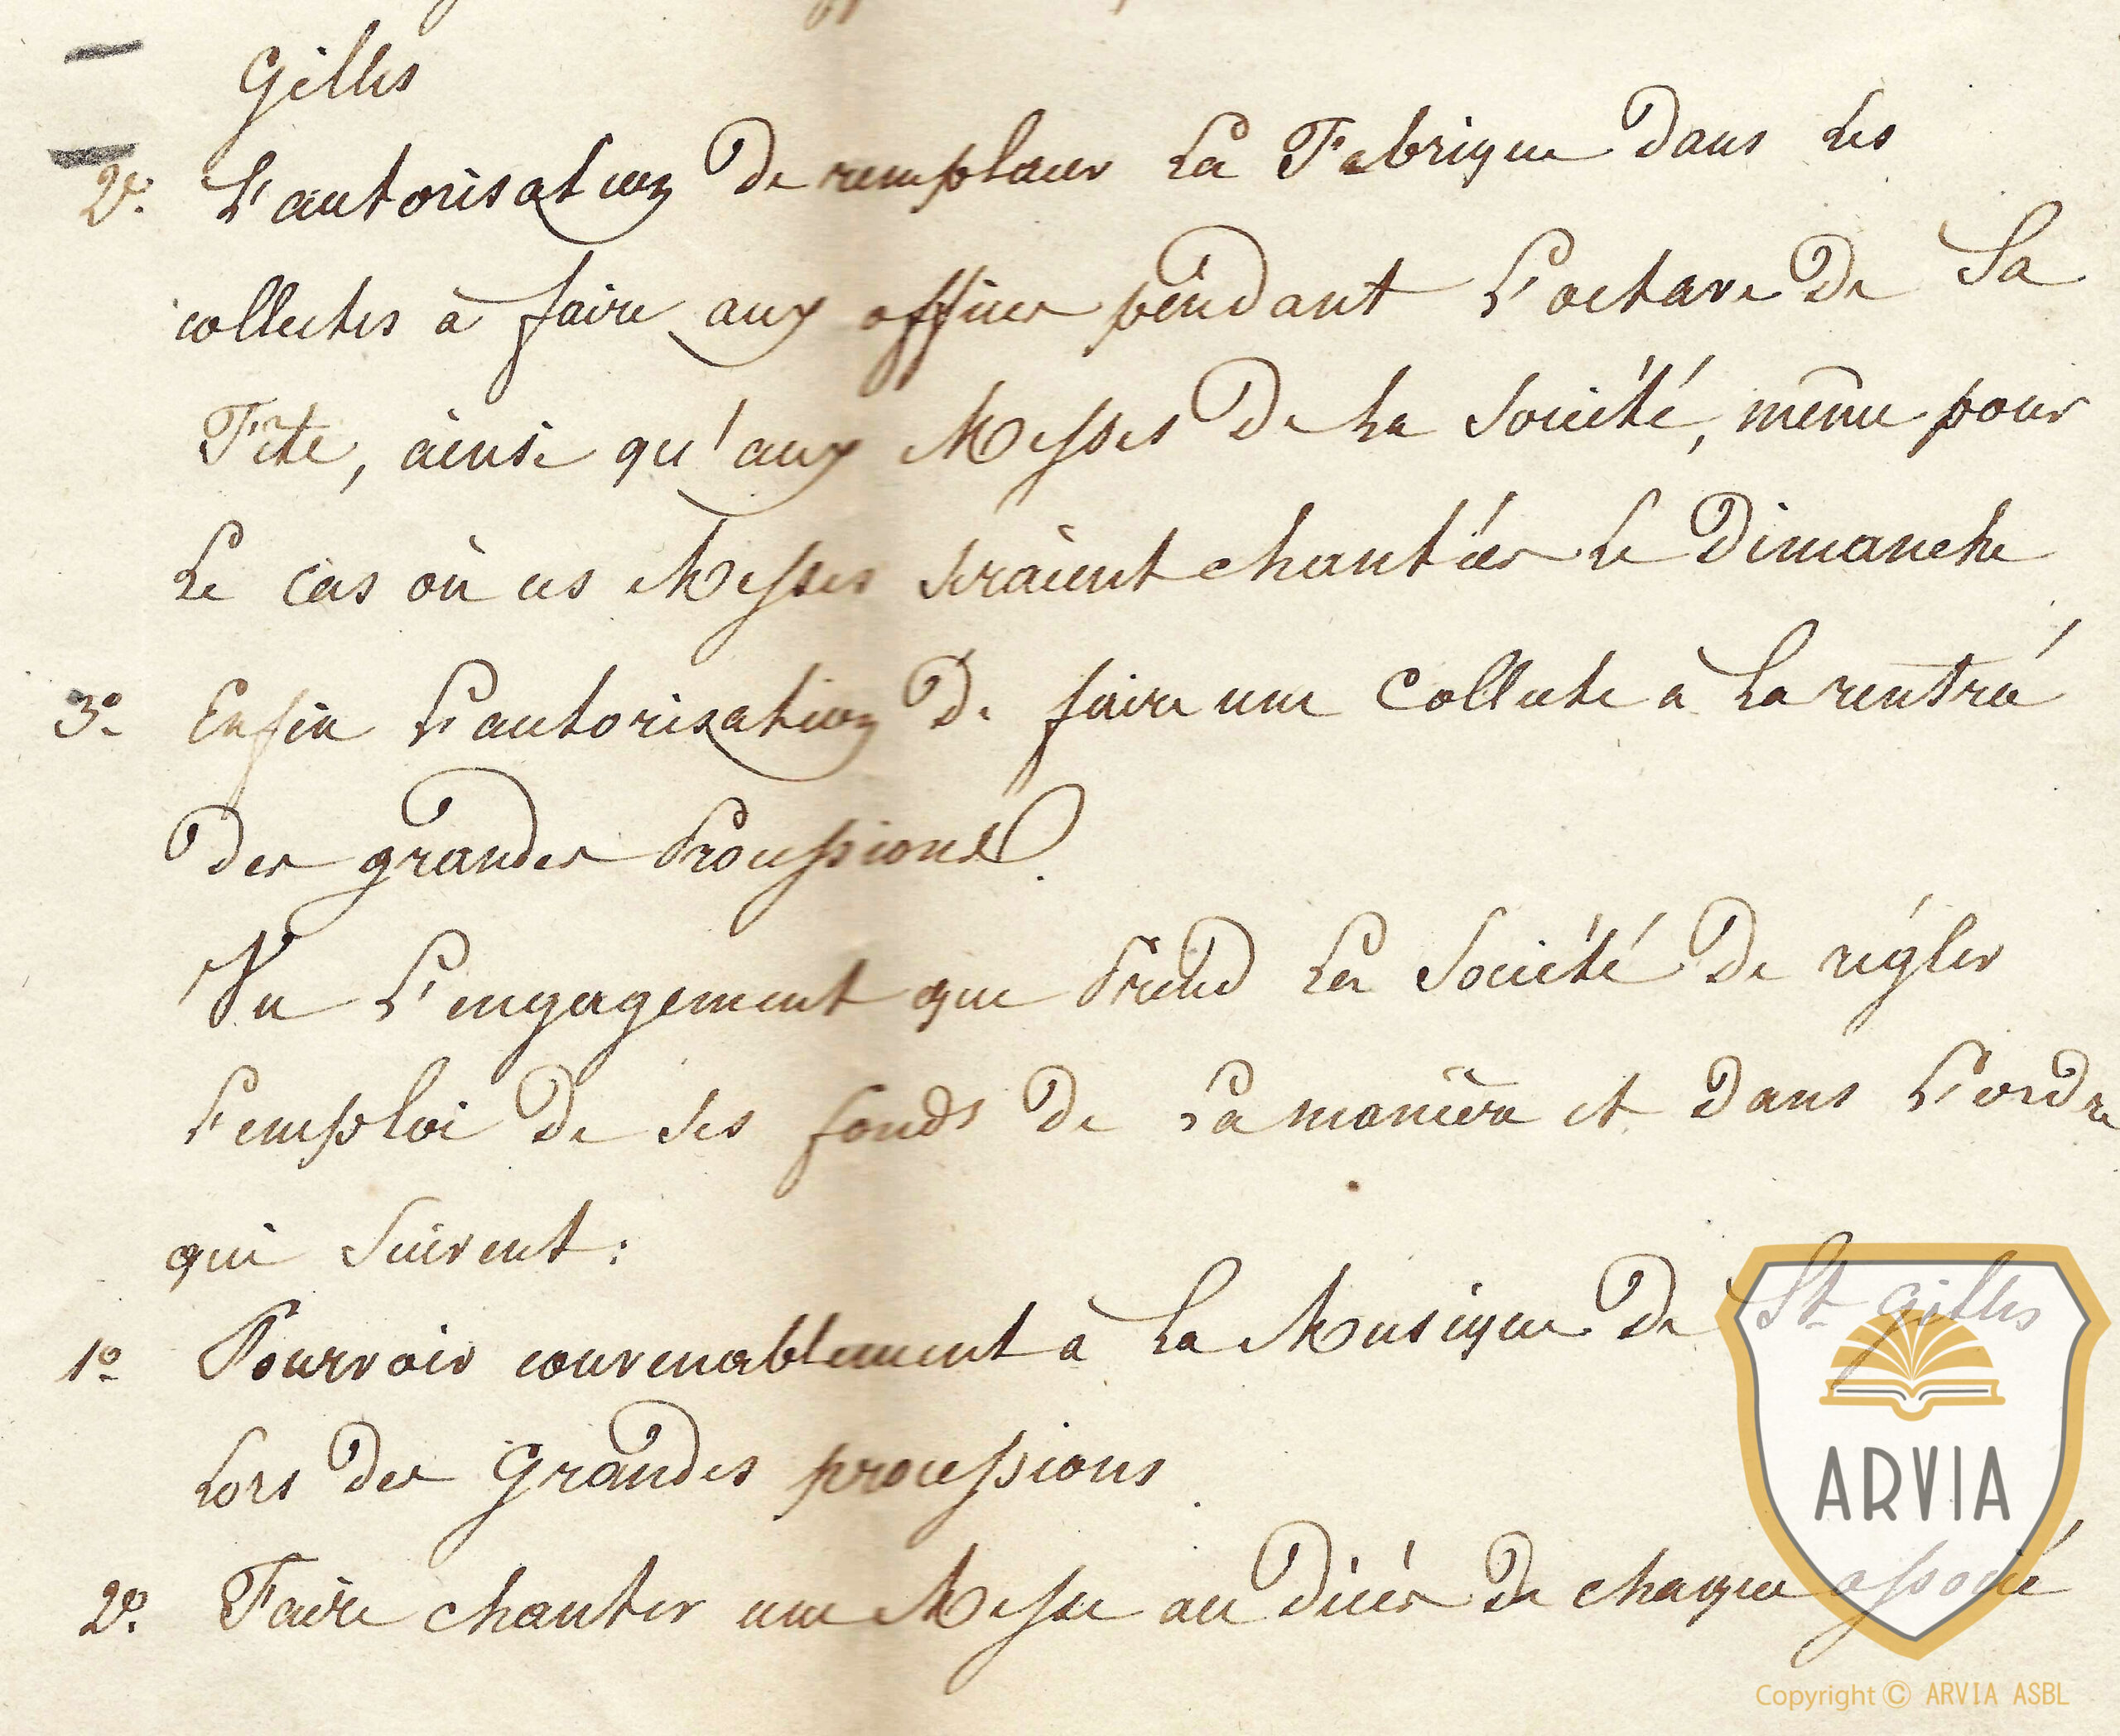 Gilles
2º. L'autorisation de remplacer La Fabrique dans Les
collectes à faire aux offices pendant L'octave de Sa
Fête, ainsi qu'aux Messes de La Société, même pour
Le cas où ces Messes seraient chantées Le Dimanche
3º Enfin L'autorisation De faire une Collecte à La rentrée
Des grandes Processions.
Vu L'engagement que Prend La Société De régler
L'emploi de ses fonds de La manière et dans L'ordre
qui Suivent :
1º Pourvoir convenablement à La Musique De St Gilles
Lors des Grandes processions.
2º. Faire chanter une Messe au Décès de chaque associé
ARVIA
Copyright © ARVIA ASBL